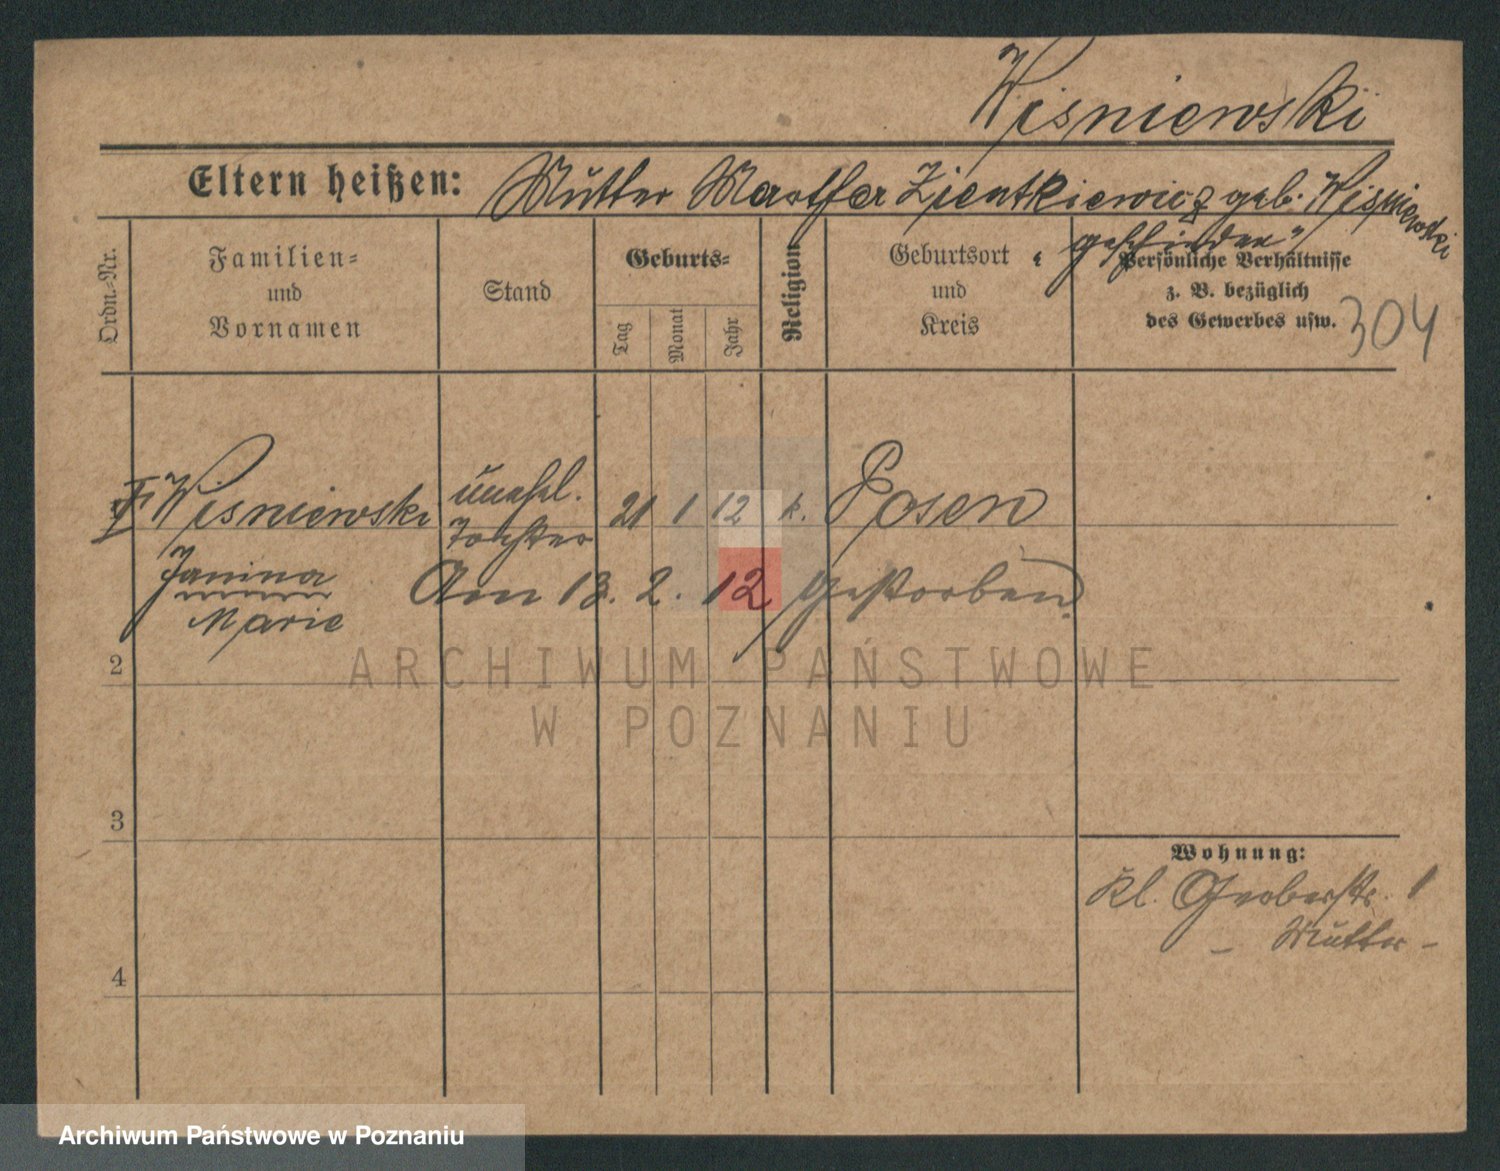 Wisniewski
Eltern heißen: Mutter Martha Zientkiewicz geb. Wisniewski
geschieden"
Ordn.-Nr.
Familien-
und
Vornamen
Stand
Geburts-
Tag
Monat
Jahr
Religion
Geburtsort
und
Kreis
Persönliche Verhältnisse
z. B. bezüglich
des Gewerbes usw.
304
Wisniewski unehel. 21 1 12 k. Posen
Tochter
Janina Am 13. 2. 12 gestorben
Marie
2
ARCHIWUM PAŃSTWOWE
W POZNANIU
3
Wohnung:
kl. Gerberstr. 1
- Mutter -
4
Archiwum Państwowe w Poznaniu